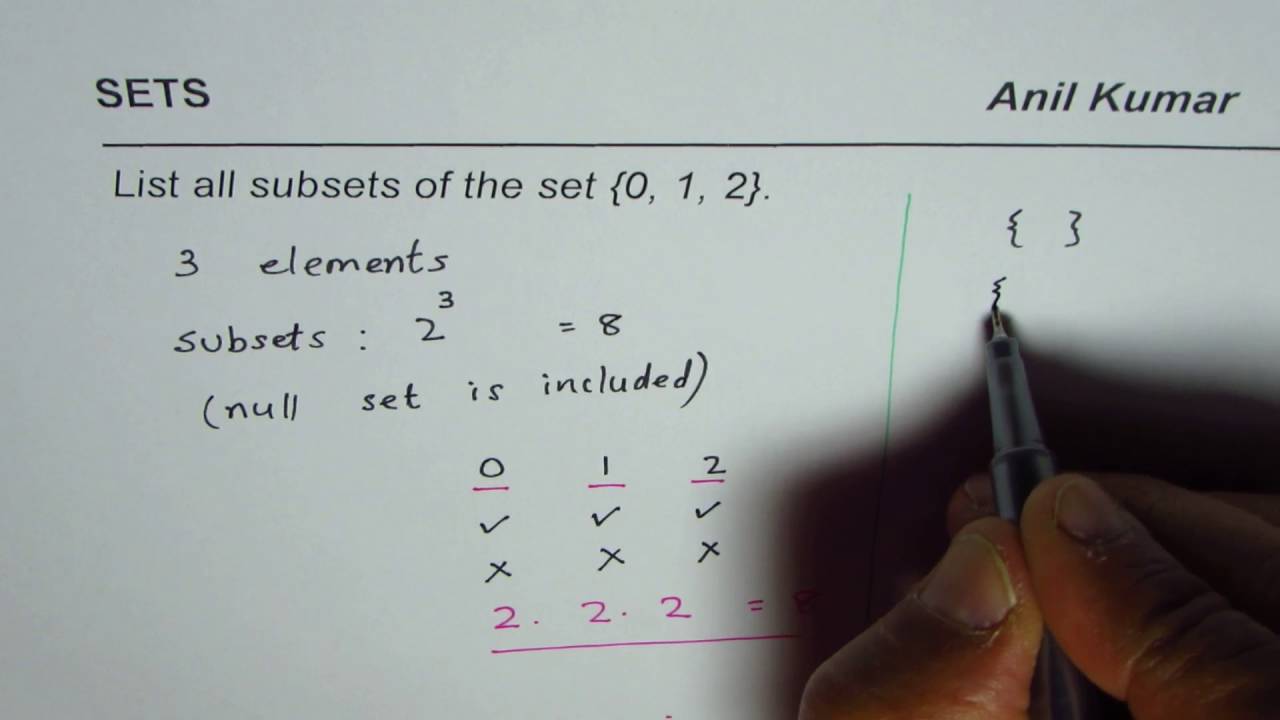 SETS
Anil Kumar
List all subsets of the set {0, 1, 2}.
3 elements
subsets : 2³ = 8
(null set is included)
0 1 2
✓ ✓ ✓
× × ×
2. 2. 2 = 8
{ }
{